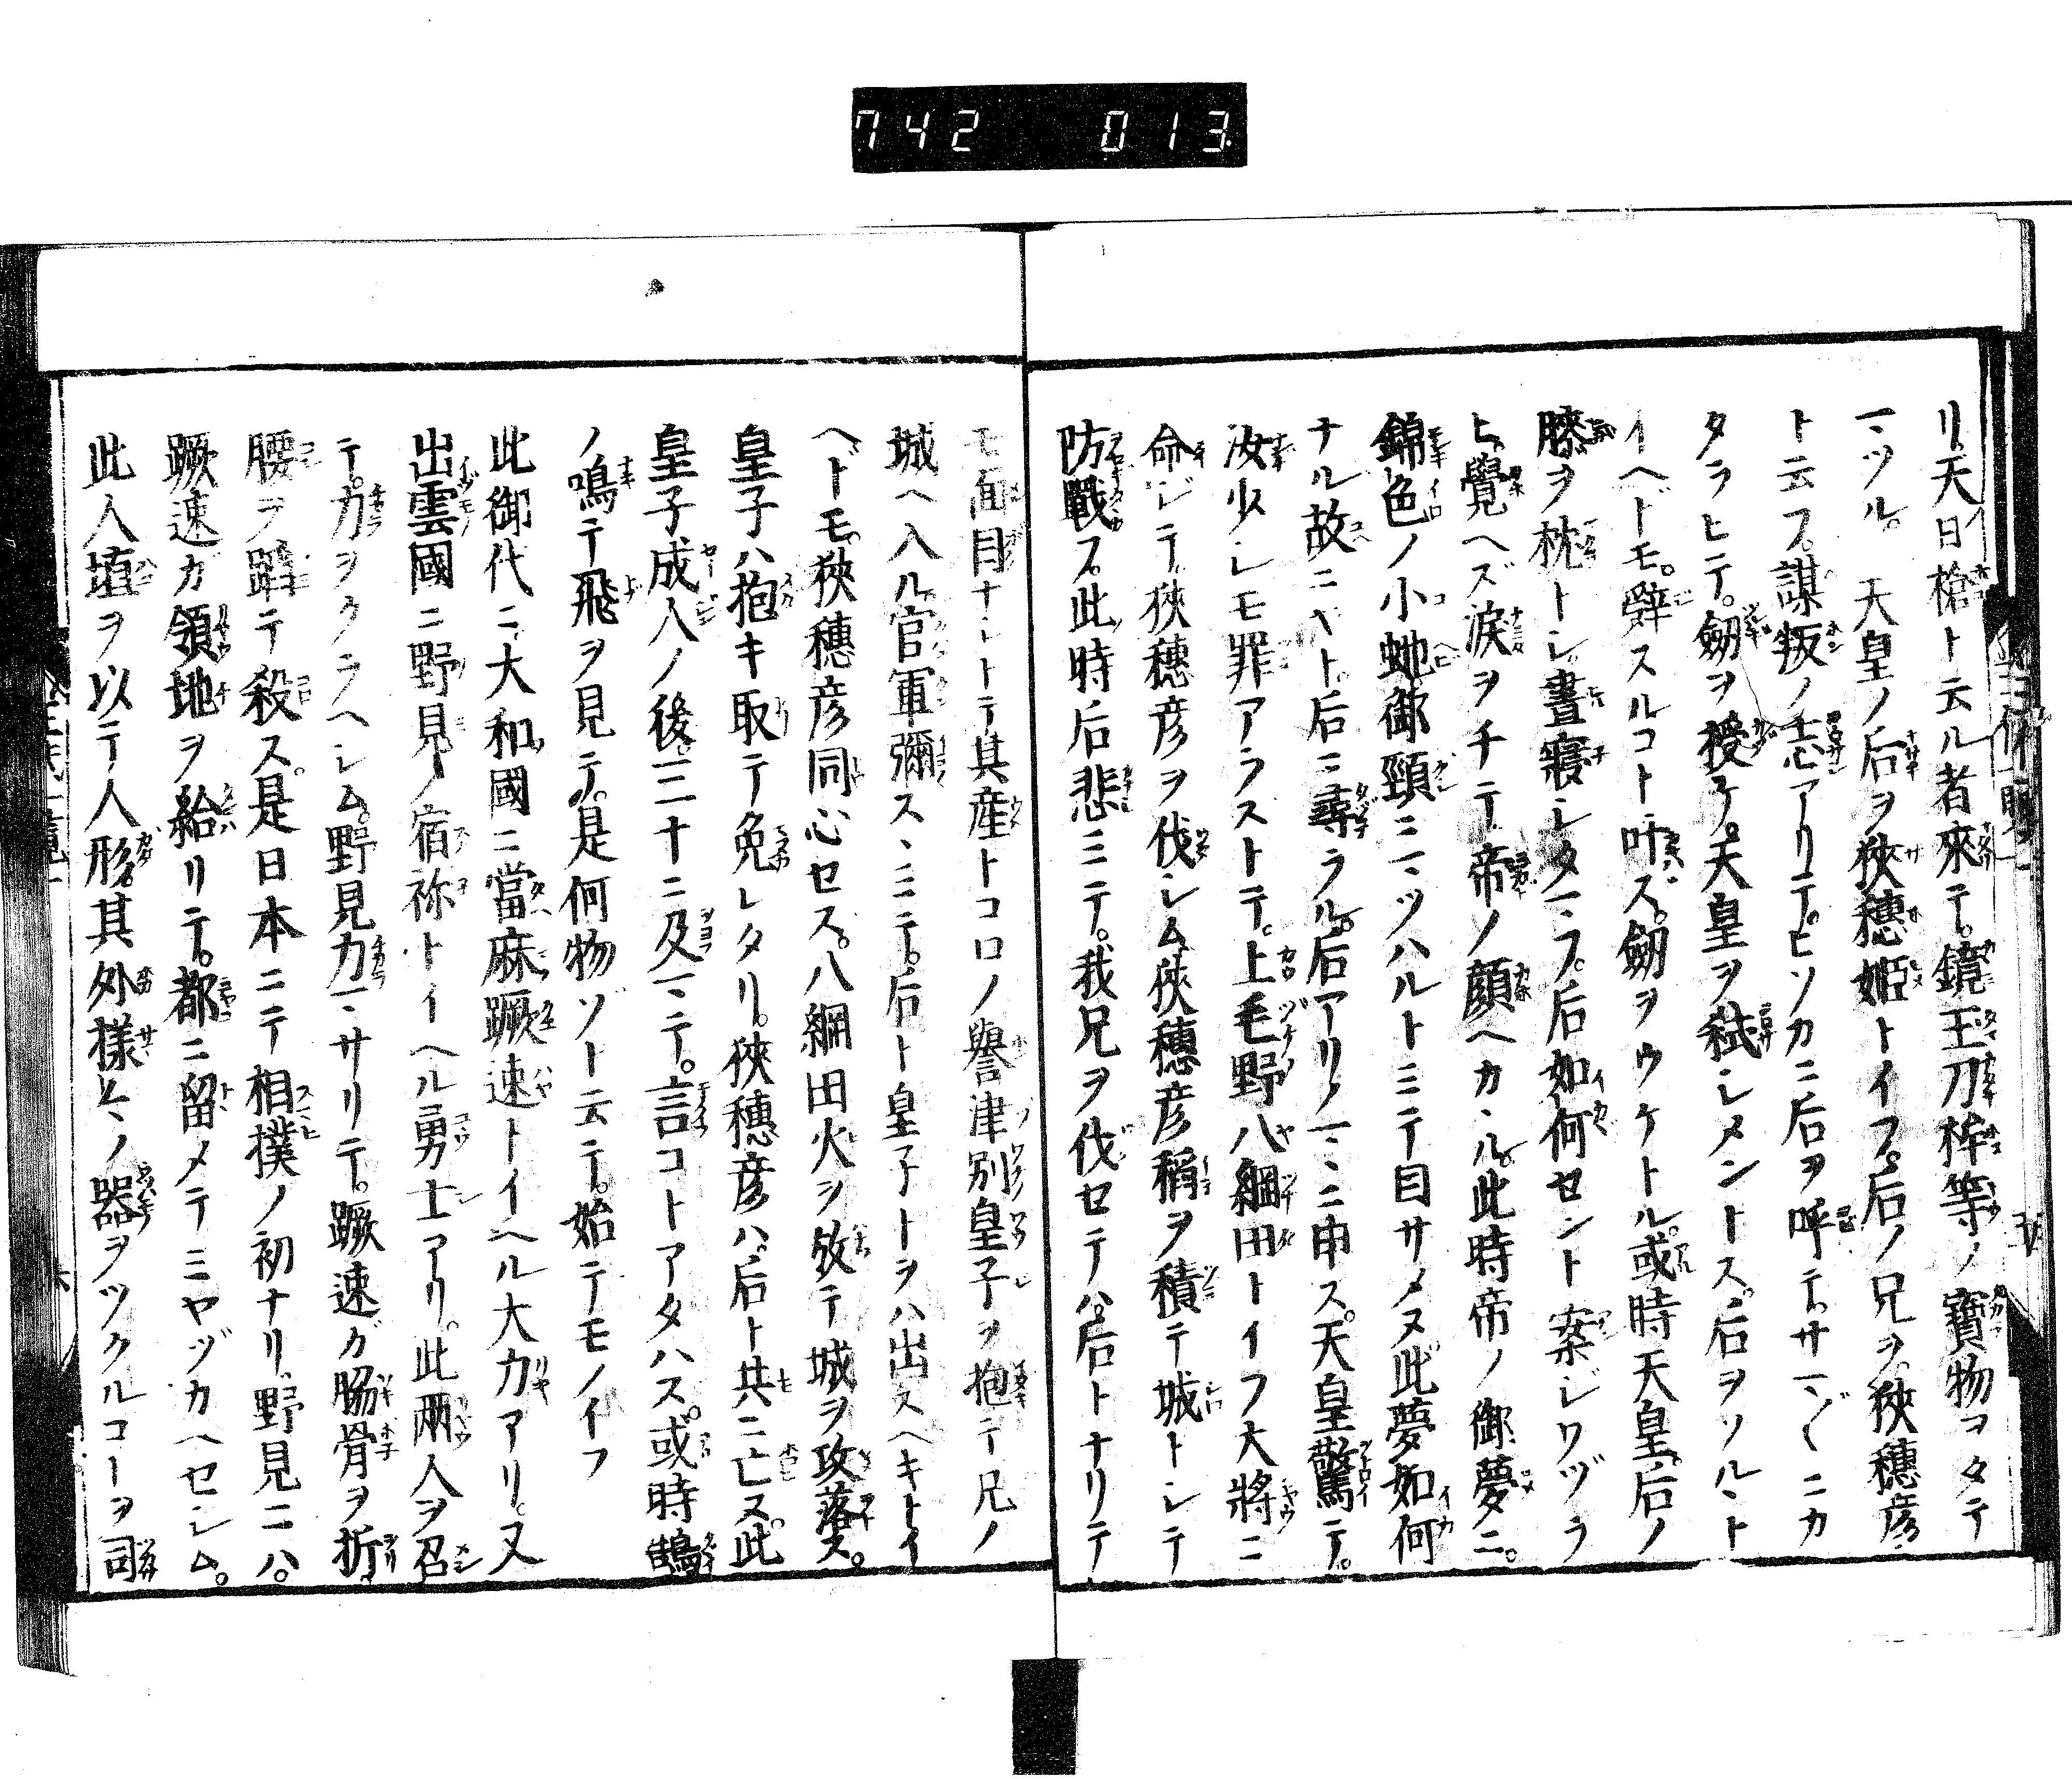 742 013
リ。天日槍ト云ル者來テ。鏡玉刀桙等ノ寶物ヲタテ
マツル。天皇ノ后ヲ狹穗姫トイフ。后ノ兄ヲ。狹穗彦
ト云フ。謀叛ノ志アリテ。ヒソカニ后ヲ呼テ。サマ〴〵ニカ
タラヒテ。劔ヲ授ケ。天皇ヲ弑シメントス。后ヲソルヽト
イヘドモ。辭スルコト叶ズ。劔ヲウケトル。或時天皇。后ノ
膝ヲ枕トシ晝寢シタマフ。后如何セント案ジワヅラ
ヒ。覺ヘズ涙ヲチテ帝ノ顔ヘカヽル。此時帝ノ御夢ニ。
錦色ノ小虵御頸ニマツハルトミテ目サメヌ此夢如何
ナル故ニヤト。后ニ尋ラル。后アリノマヽニ申ス。天皇驚テ。
汝少シモ罪アラストテ。上毛野八綱田トイフ大將ニ
命ジテ。狹穗彦ヲ伐シム狹穗彦稱ヲ積テ城トシテ
防戰フ。此時后悲ミテ。我兄ヲ伐セテハ。后トナリテ
モ面目ナシトテ其産トコロノ譽津別皇子ヲ抱テ兄ノ
城ヘ入ル官軍彌スヽミテ。后ト皇子トヲハ出スヘキトイ
ヘドモ。狹穗彦同心セス。八綱田火ヲ放テ城ヲ攻落ス。
皇子ハ抱キ取テ免レタリ。狹穗彦ハ。后ト共ニ亡ス。此
皇子成人ノ後。三十ニ及マテ。言コトアタハス。或時鵠
ノ鳴テ飛ヲ見テ。是何物ゾト云テ。始テモノイフ
此御代ニ大和國ニ當麻蹶速トイヘル大力アリ。又
出雲國ニ野見ノ宿祢トイヘル勇士アリ。此兩人ヲ召
テ。力ヲクラヘシム。野見力マサリテ。蹶速ガ脇骨ヲ折。
腰ヲ蹈テ殺ス。是日本ニテ相撲ノ初ナリ。野見ニハ。
蹶速ガ領地ヲ給リテ。都ニ留メテミヤヅカヘセシム。
此人埴ヲ以テ人形。其外樣〻ノ器ヲツクルコーヲ司